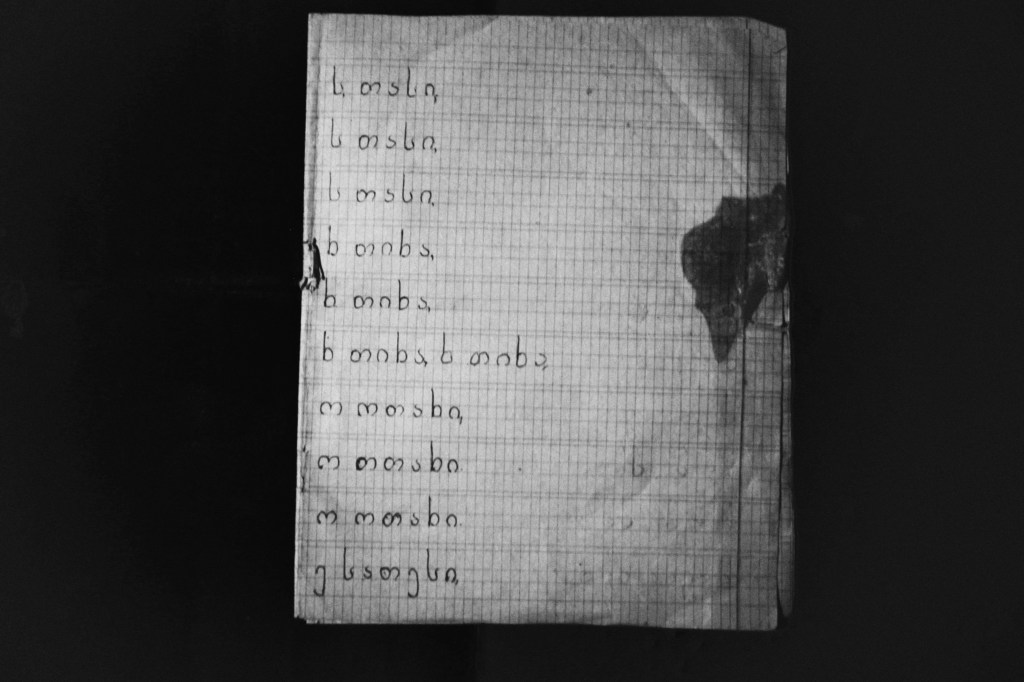 ს, თასი,
ს თასი,
ს თასი,
ხ თიხა,
ხ თიხა,
ხ თიხა, ხ თიხა,
ო ოთახი,
ო ოთახი.
ო ოთახი.
ე სათესი,